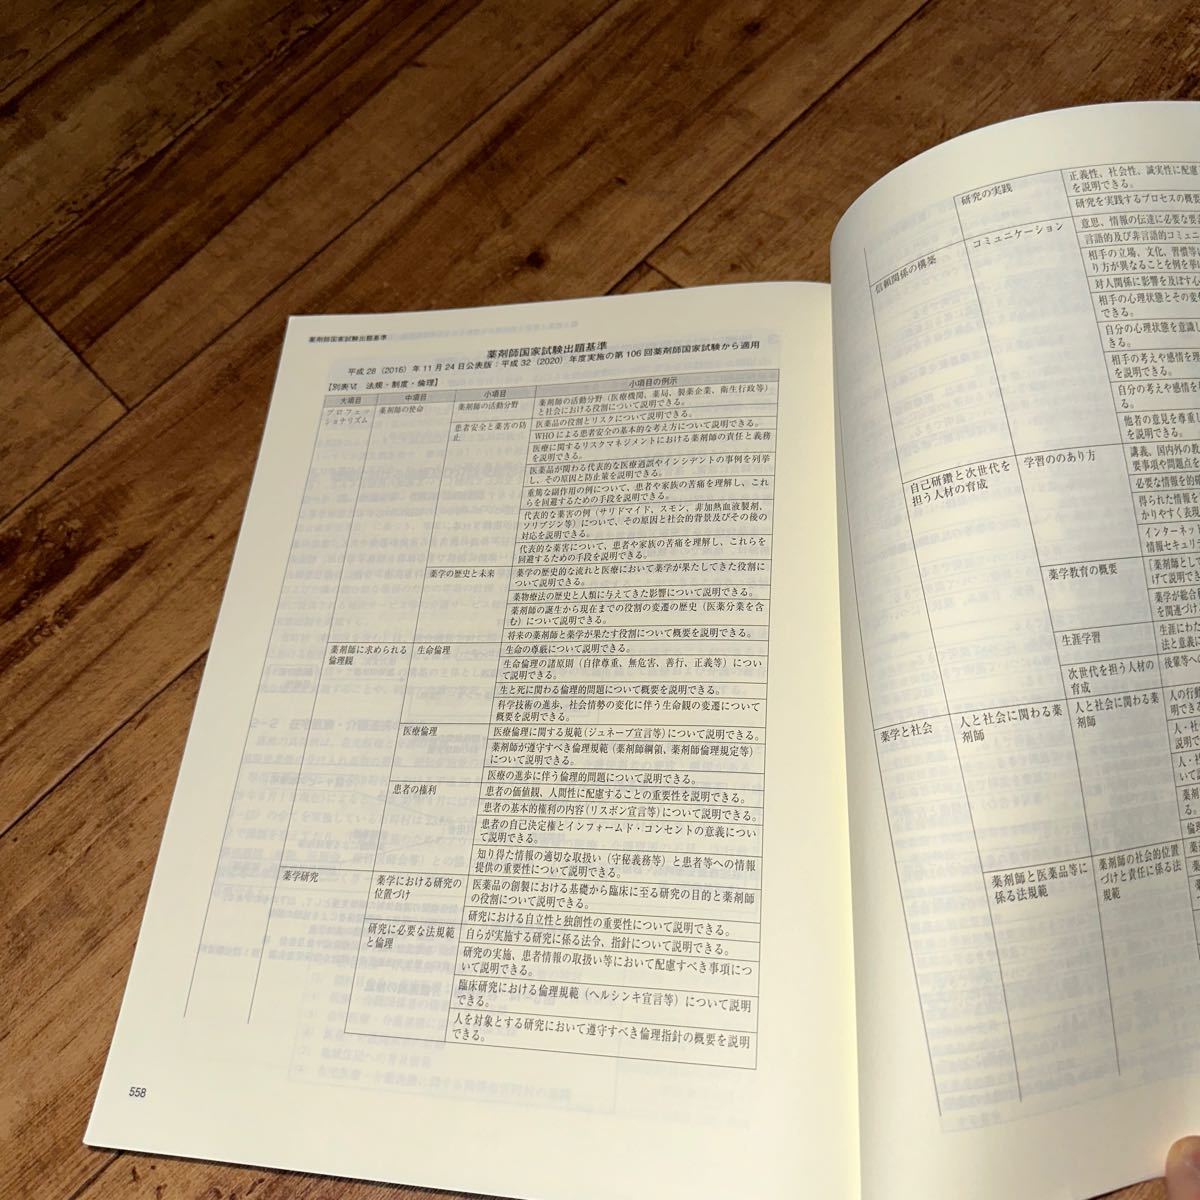 薬剤師国家試験出題基準
薬剤師国家試験出題基準
平成28（2016）年11月24日公表版：平成32（2020）年度実施の第106回薬剤師国家試験から適用
【別表Ⅵ 法規・制度・倫理】
大項目 中項目 小項目 小項目の例示
プロフェッ
ショナリズム
薬剤師の使命
薬剤師の活動分野
薬剤師の活動分野（医療機関、薬局、製薬企業、衛生行政等）
と社会における役割について説明できる。
患者安全と薬害の防
止
医薬品の役割とリスクについて説明できる。
WHOによる患者安全の基本的な考え方について説明できる。
医療に関するリスクマネジメントにおける薬剤師の責任と義務
を説明できる。
医薬品が関わる代表的な医療過誤やインシデントの事例を列挙
し、その原因と防止策を説明できる。
重篤な副作用の例について、患者や家族の苦痛を理解し、これ
らを回避するための手段を説明できる。
代表的な薬害の例（サリドマイド、スモン、非加熱血液製剤、
ソリブジン等）について、その原因と社会的背景及びその後の
対応を説明できる。
代表的な薬害について、患者や家族の苦痛を理解し、これらを
回避するための手段を説明できる。
薬学の歴史と未来
薬学の歴史的な流れと医療において薬学が果たしてきた役割に
ついて説明できる。
薬物療法の歴史と人類に与えてきた影響について説明できる。
薬剤師の誕生から現在までの役割の変遷の歴史（医薬分業を含
む）について説明できる。
将来の薬剤師と薬学が果たす役割について概要を説明できる。
薬剤師に求められる
倫理観
生命倫理
生命の尊厳について説明できる。
生命倫理の諸原則（自律尊重、無危害、善行、正義等）につい
て説明できる。
生と死に関わる倫理的問題について概要を説明できる。
科学技術の進歩、社会情勢の変化に伴う生命観の変遷について
概要を説明できる。
医療倫理
医療倫理に関する規範（ジュネーブ宣言等）について説明できる。
薬剤師が遵守すべき倫理規範（薬剤師綱領、薬剤師倫理規定等）
について説明できる。
医療の進歩に伴う倫理的問題について説明できる。
患者の権利
患者の価値観、人間性に配慮することの重要性を説明できる。
患者の基本的権利の内容（リスボン宣言等）について説明できる。
患者の自己決定権とインフォームド・コンセントの意義につい
て説明できる。
知り得た情報の適切な取扱い（守秘義務等）と患者等への情報
提供の重要性について説明できる。
薬学研究
薬学における研究の
位置づけ
医薬品の創製における基礎から臨床に至る研究の目的と薬剤師
の役割について説明できる。
研究における自立性と独創性の重要性について説明できる。
研究に必要な法規範
と倫理
自らが実施する研究に係る法令、指針について説明できる。
研究の実施、患者情報の取扱い等において配慮すべき事項につ
いて説明できる。
臨床研究における倫理規範（ヘルシンキ宣言等）について説明
できる。
人を対象とする研究において遵守すべき倫理指針の概要を説明
できる。
558
研究の実践
正義性、社会性、誠実性に配慮
を説明できる。
研究を実践するプロセスの概要
信頼関係の構築
コミュニケーション
意思、情報の伝達に必要な要
言語的及び非言語的コミュニ
相手の立場、文化、習慣等
り方が異なることを例を挙
対人関係に影響を及ぼす心
相手の心理状態とその変
できる。
自分の心理状態を意識し
相手の考えや感情を理
できる。
自分の考えや感情を
できる。
他者の意見を尊重し
できる。
自己研鑽と次世代を
担う人材の育成
学習ののあり方
講義、国内外の教
要事項や問題点を
必要な情報を的確
得られた情報を
かりやすく表現
インターネッ
情報セキュリ
薬学教育の概要
「薬剤師として
げて説明でき
薬学が総合科
を関連づけ
生涯学習
生涯にわた
法と意義に
次世代を担う人材の
育成
後輩等への
薬学と社会
人と社会に関わる薬
剤師
人と社会に関わる薬
剤師
人の行動
明できる
人・社
説明で
人・社
いて説
薬剤
る。
倫
薬剤師と医薬品等に
係る法規範
薬剤師の社会的位置
づけと責任に係る法
規範